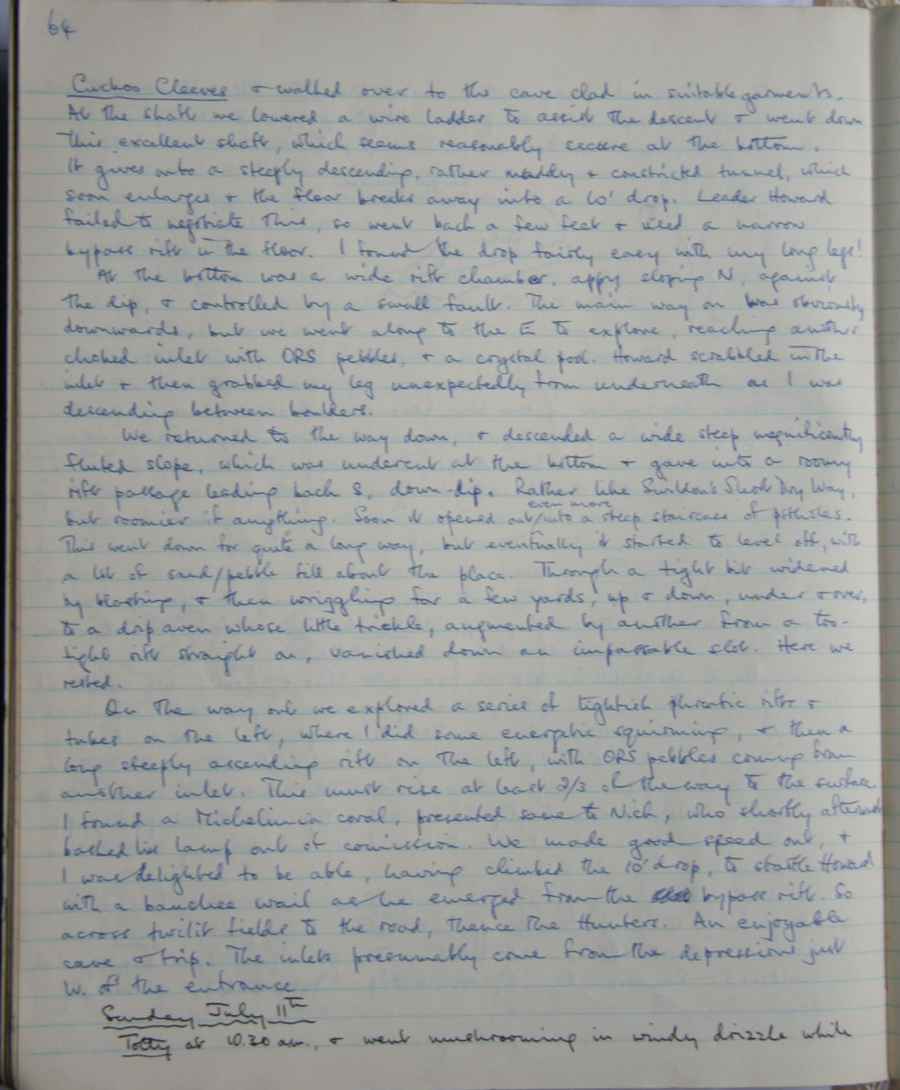 64
Cuckoo Cleeves & walked over to the cave clad in suitable garments.
At the shaft we lowered a wire ladder to assist the descent & went down
this excellent shaft, which seems reasonably secure at the bottom.
It gives onto a steeply descending, rather muddy & constricted tunnel, which
soon enlarges & the floor breaks away into a 10' drop. Leader Howard
failed to negotiate this, so went back a few feet & used a narrow
bypass rift in the floor. I found the drop fairly easy with my long legs!
At the bottom was a wide rift chamber, appy sloping N, against
the dip, & controlled by a small fault. The main way on was obviously
downwards, but we went along to the E to explore, reaching another
choked inlet with ORS pebbles, & a crystal pool. Howard scrabbled in the
inlet & then grabbed my leg unexpectedly from underneath as I was
descending between boulders.
We returned to the way down, & descended a wide steep magnificently
fluted slope, which was undercut at the bottom & gave into a roomy
rift passage leading back S, down-dip. Rather like Swildon's Short Dry Way,
but roomier if anything. Soon it opened out even more into a steep staircase of potholes.
This went down for quite a long way, but eventually it started to level off, with
a lot of sand/pebble fill about the place. Through a tight bit widened
by blasting, & then wriggling for a few yards, up & down, under & over,
to a drip aven whose little trickle, augmented by another from a too-
tight rift straight on, vanished down an impassable slot. Here we
rested.
On the way out we explored a series of tightish phreatic rifts &
tubes on the left, where I did some energetic squirming, & then a
long steeply ascending rift on the left, with ORS pebbles coming from
another inlet. This must rise at least 2/3 of the way to the surface.
I found a Michelinia coral, presented same to Nich, who shortly afterwards
bashed his lamp out of comission. We made good speed out, &
I was delighted to be able, having climbed the 10' drop, to startle Howard
with a banchee wail as he emerged from the bypass rift. So
across twilit fields to the road, thence the Hunters. An enjoyable
cave & trip. The inlets presumably come from the depressions just
W. of the entrance
Sunday July 11th
Totty at 10.30 am., & went mushrooming in windy drizzle while